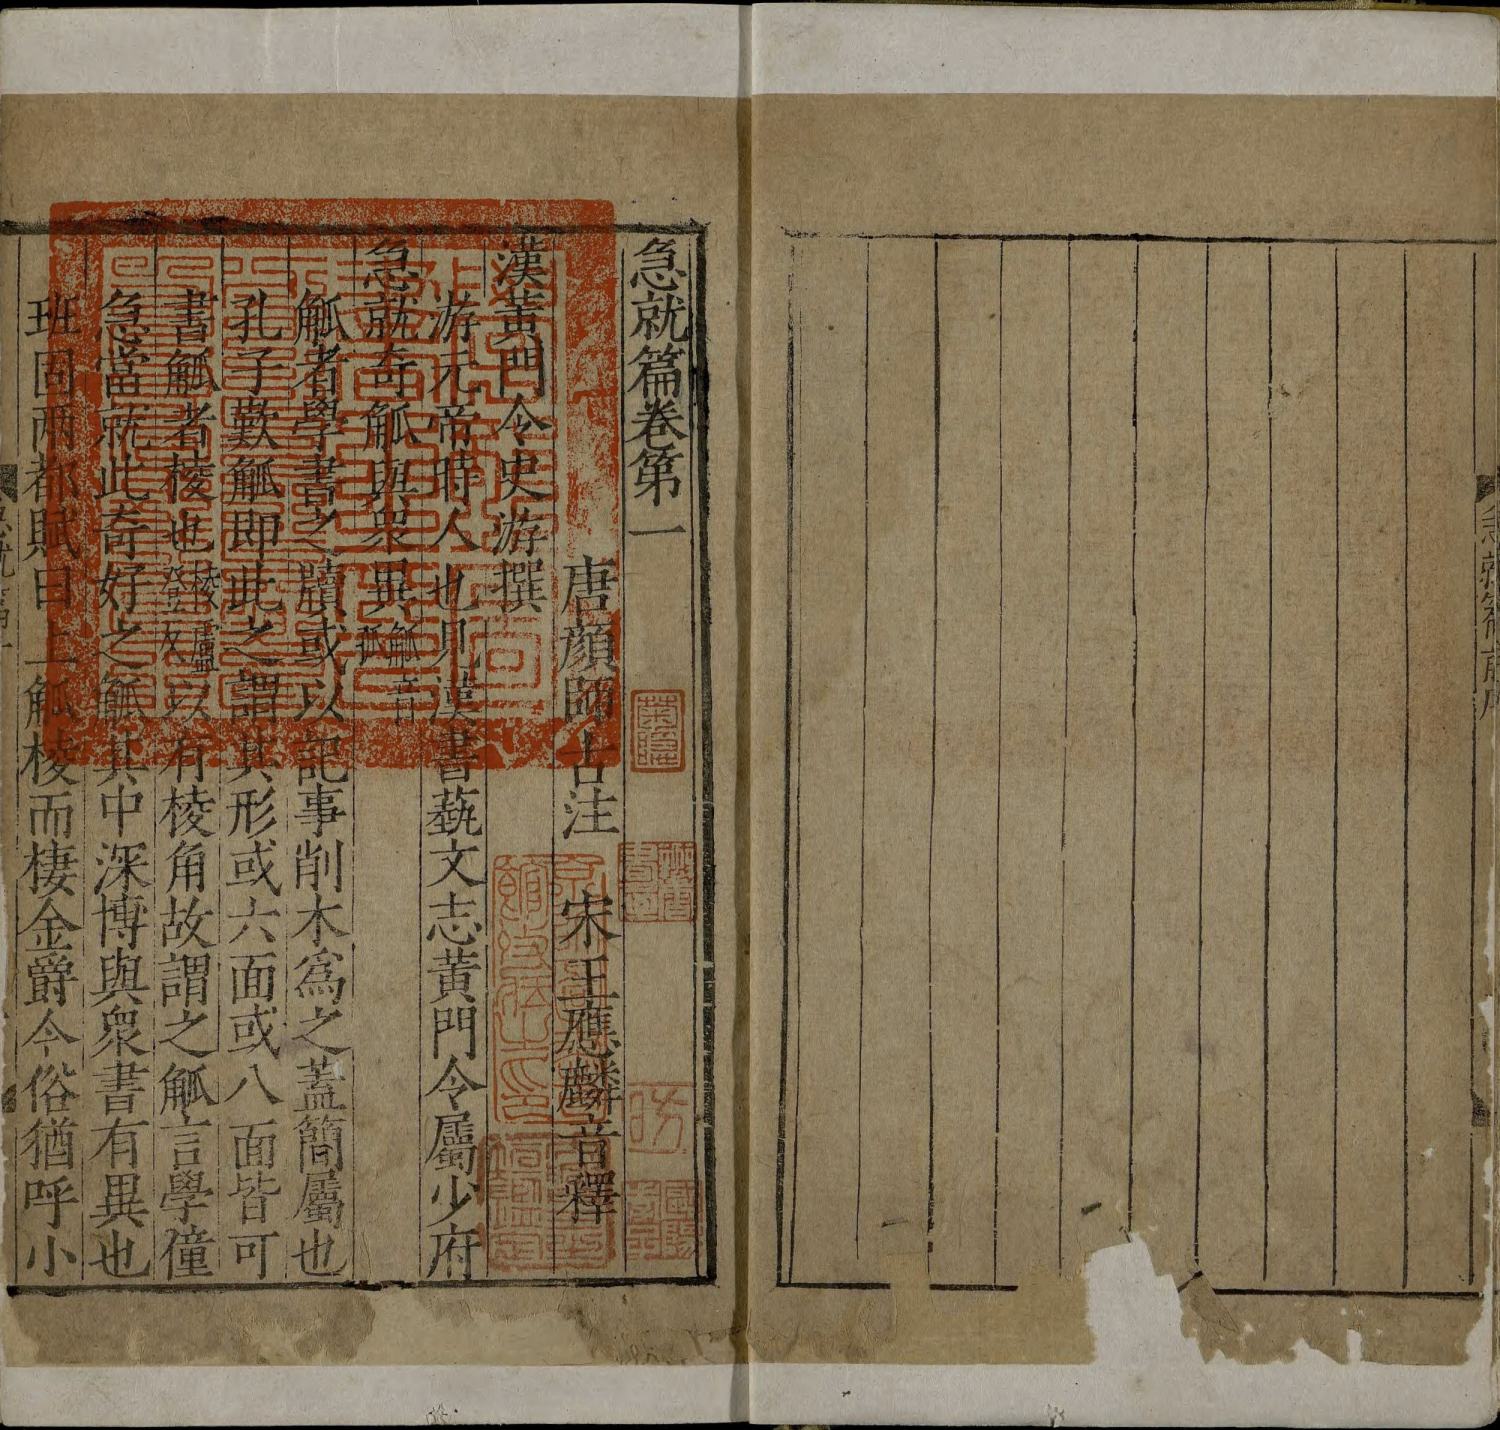 急就篇卷第一
唐顏師古注　宋王應麟音釋
漢黃門令史游撰
游元帝時人也見漢書蓺文志黃門令屬少府
急就奇觚與衆異觚音孤
觚者學書之牘或以記事削木爲之蓋簡屬也
孔子歎觚即此之謂其形或六面或八面皆可
書觚者棱也棱盧登反以有棱角故謂之觚言學僮
急當就此奇好之觚其中深博與衆書有異也
班固兩都賦曰上觚棱而棲金爵今俗猶呼小